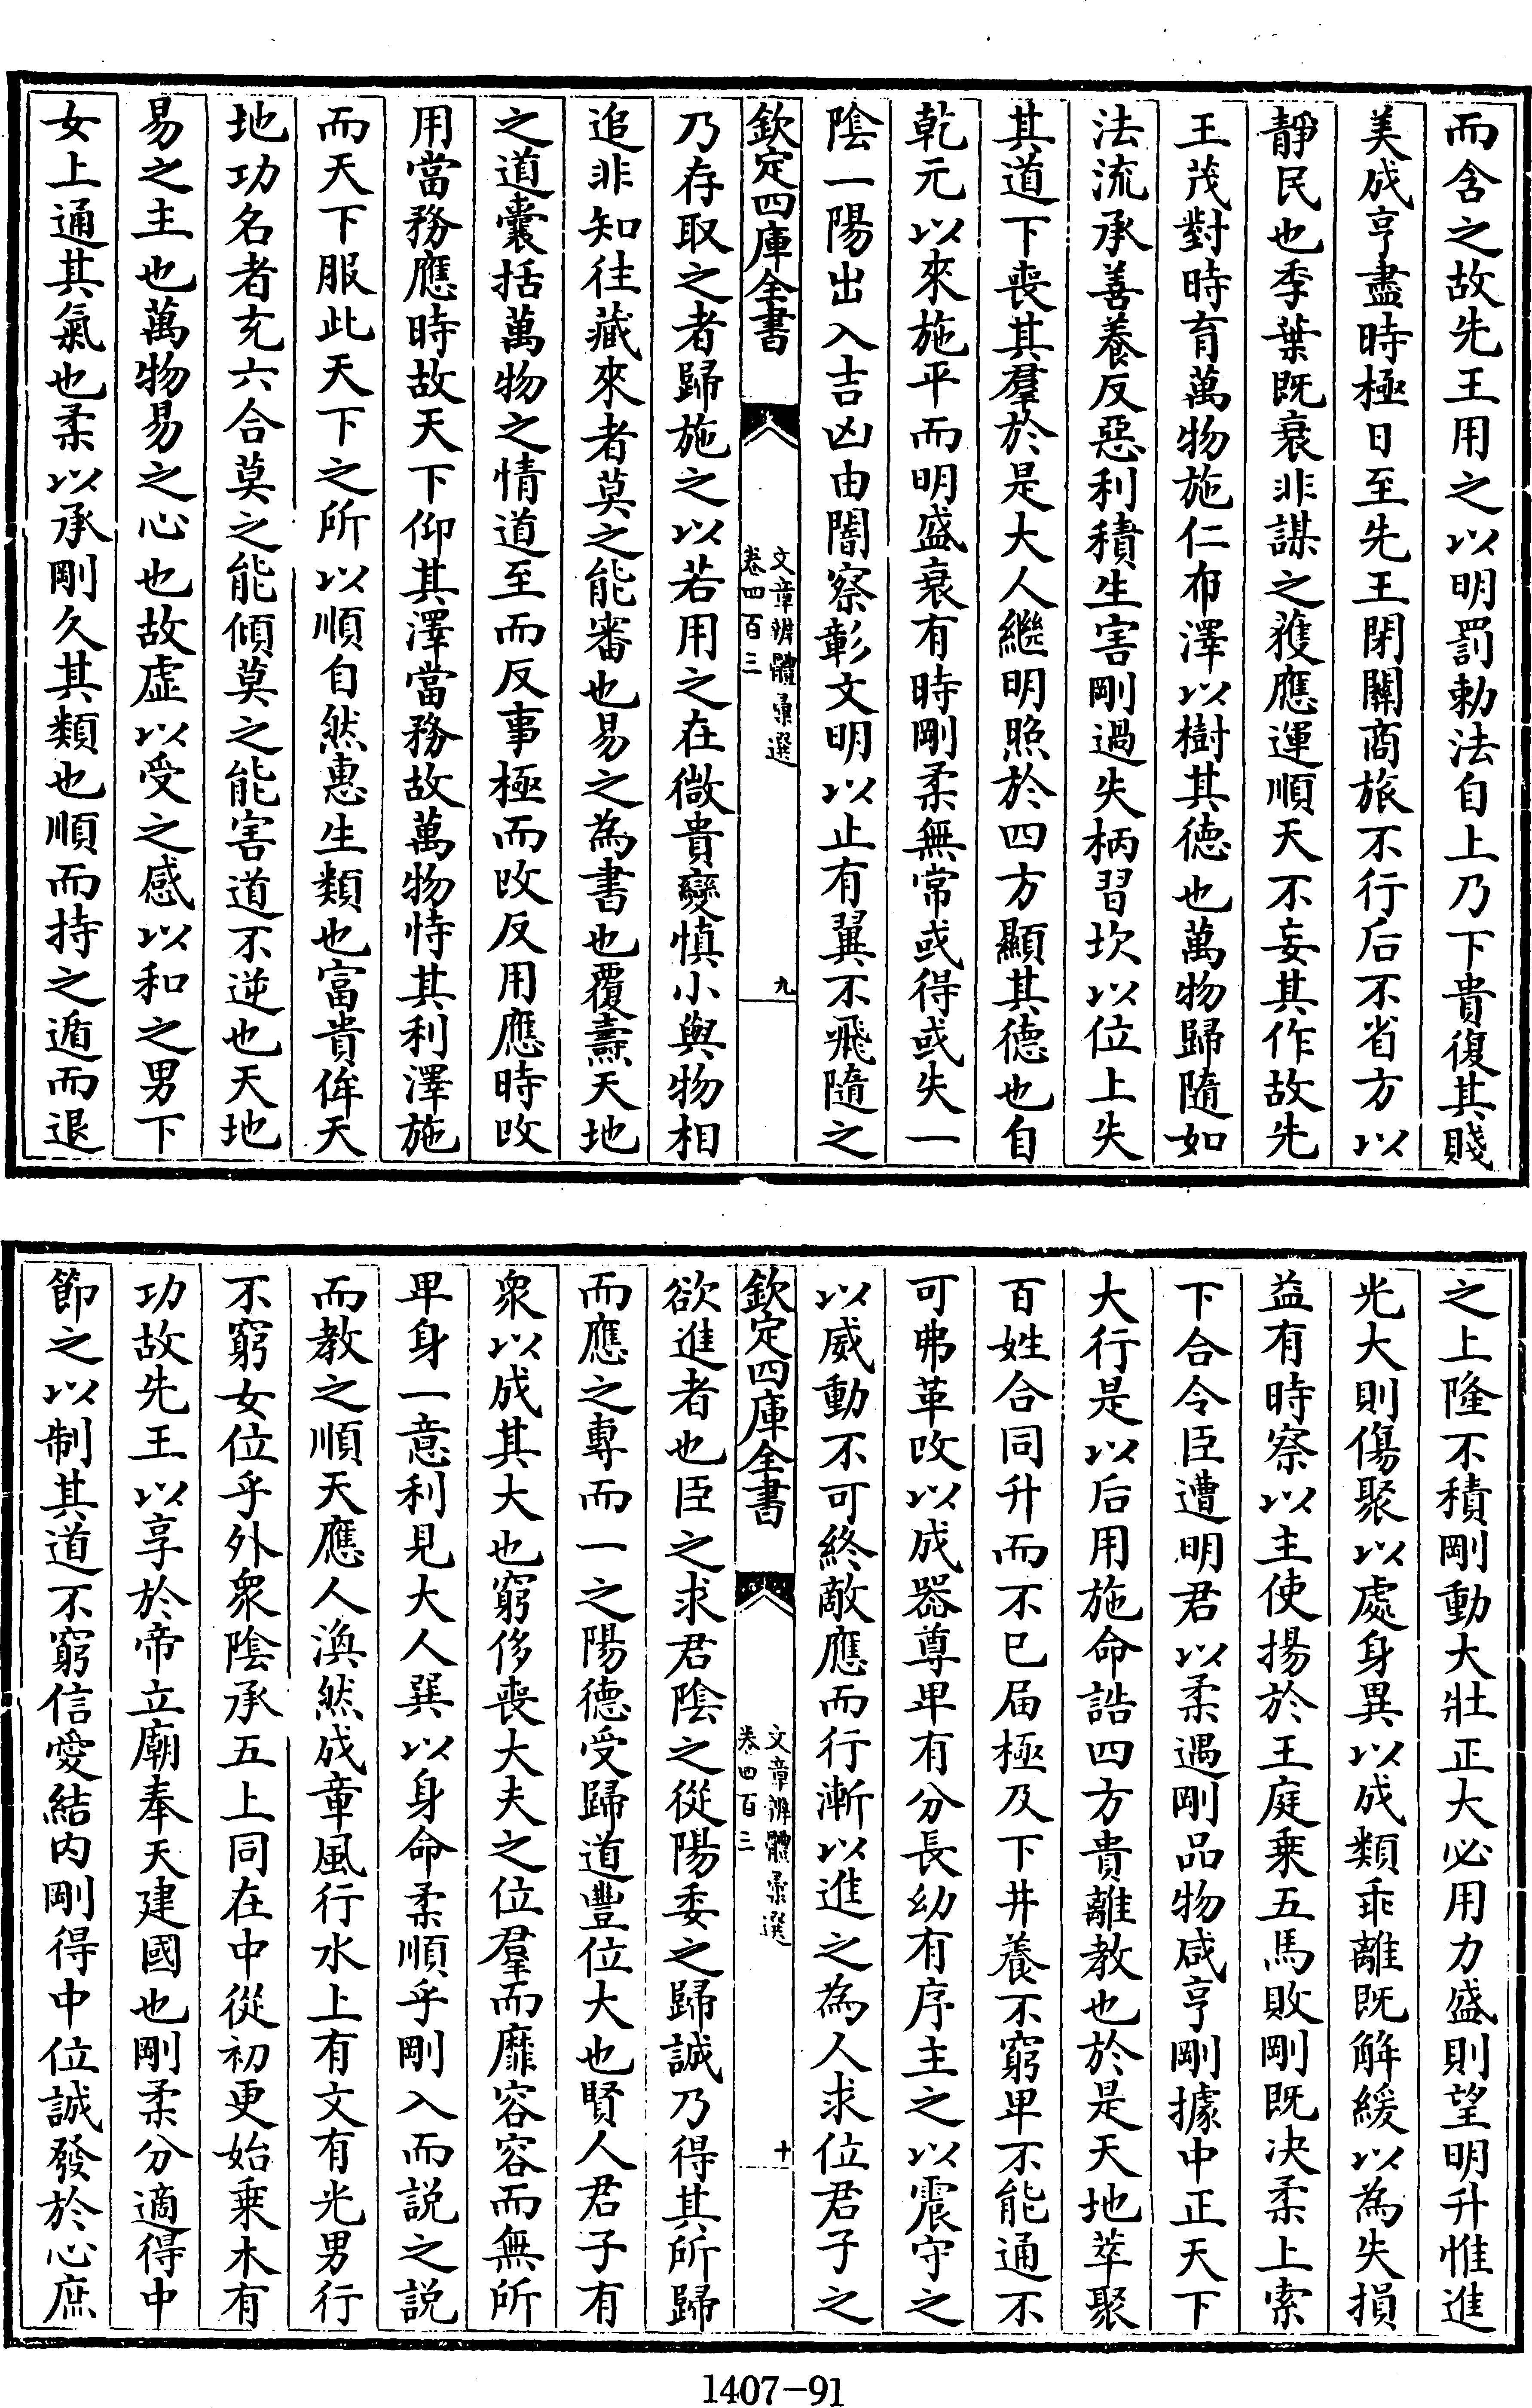 而含之故先王用之以明罰勅法自上乃下貴復其賤
美成亨盡時極日至先王閉關商旅不行后不省方以
靜民也季葉既衰非謀之蒦應運順天不妄其作故先
王茂對時育萬物施仁布澤以樹其德也萬物歸隨如
法流承善養反惡利積生害剛過失柄習坎以位上失
其道下喪其羣於是大人繼明照於四方顯其德也自
乾元以來施平而明盛衰有時剛柔無常或得或失一
陰一陽出入吉凶由闇察彰文明以止有翼不飛隨之
欽定四庫全書
文章辨體彙選
卷四百三
九
乃存取之者歸施之以若用之在微貴變慎小與物相
追非知往藏來者莫之能審也易之為書也覆燾天地
之道囊括萬物之情道至而反事極而改反用應時改
用當務應時故天下仰其澤當務故萬物恃其利澤施
而天下服此天下之所以順自然惠生類也富貴侔天
地功名者充六合莫之能傾莫之能害道不逆也天地
易之主也萬物易之心也故虛以受之感以和之男下
女上通其氣也柔以承剛久其類也順而持之遁而退
之上隆不積剛動大壯正大必用力盛則望明升惟進
光大則傷聚以處身異以成類乖離既解緩以為失損
益有時察以主使揚於王庭乗五馬敗剛既决柔上索
下合令臣遭明君以柔遇剛品物咸亨剛據中正天下
大行是以后用施命誥四方貴離教也於是天地萃聚
百姓合同升而不已届極及下井養不窮卑不能通不
可弗革改以成器尊卑有分長幼有序主之以震守之
以威動不可終敵應而行漸以進之為人求位君子之
欽定四庫全書
文章辨體彙選
卷四百三
十
欲進者也臣之求君陰之從陽委之歸誠乃得其所歸
而應之專而一之陽德受歸道豐位大也賢人君子有
衆以成其大也窮侈喪大夫之位羣而靡容容而無所
卑身一意利見大人巽以身命柔順乎剛入而說之說
而教之順天應人渙然成章風行水上有文有光男行
不窮女位乎外衆陰承五上同在中從初更始乗木有
功故先王以享於帝立廟奉天建國也剛柔分適得中
節之以制其道不窮信愛結内剛得中位誠發於心庶
1407-91